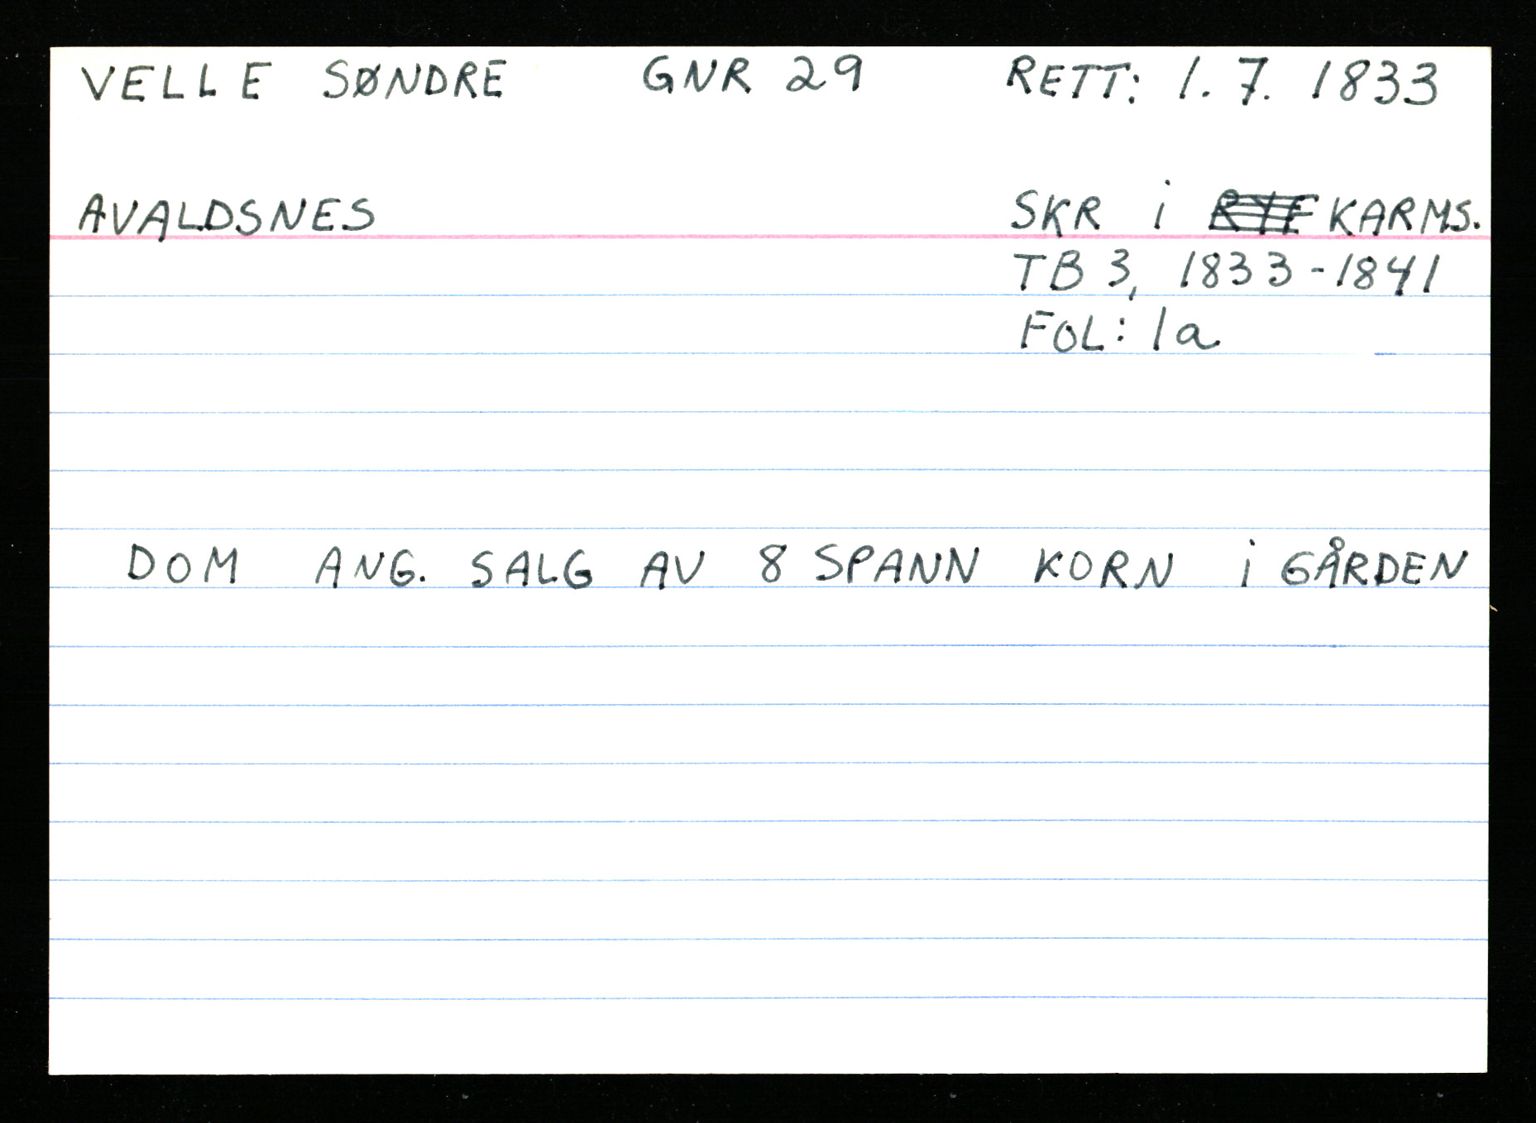 VELLE SØNDRE GNR 29 RETT: 1. 7. 1833
AVALDSNES SKR i KARMS.
TB 3, 1833-1841
FOL: 1a
DOM ANG. SALG AV 8 SPANN KORN i GÅRDEN